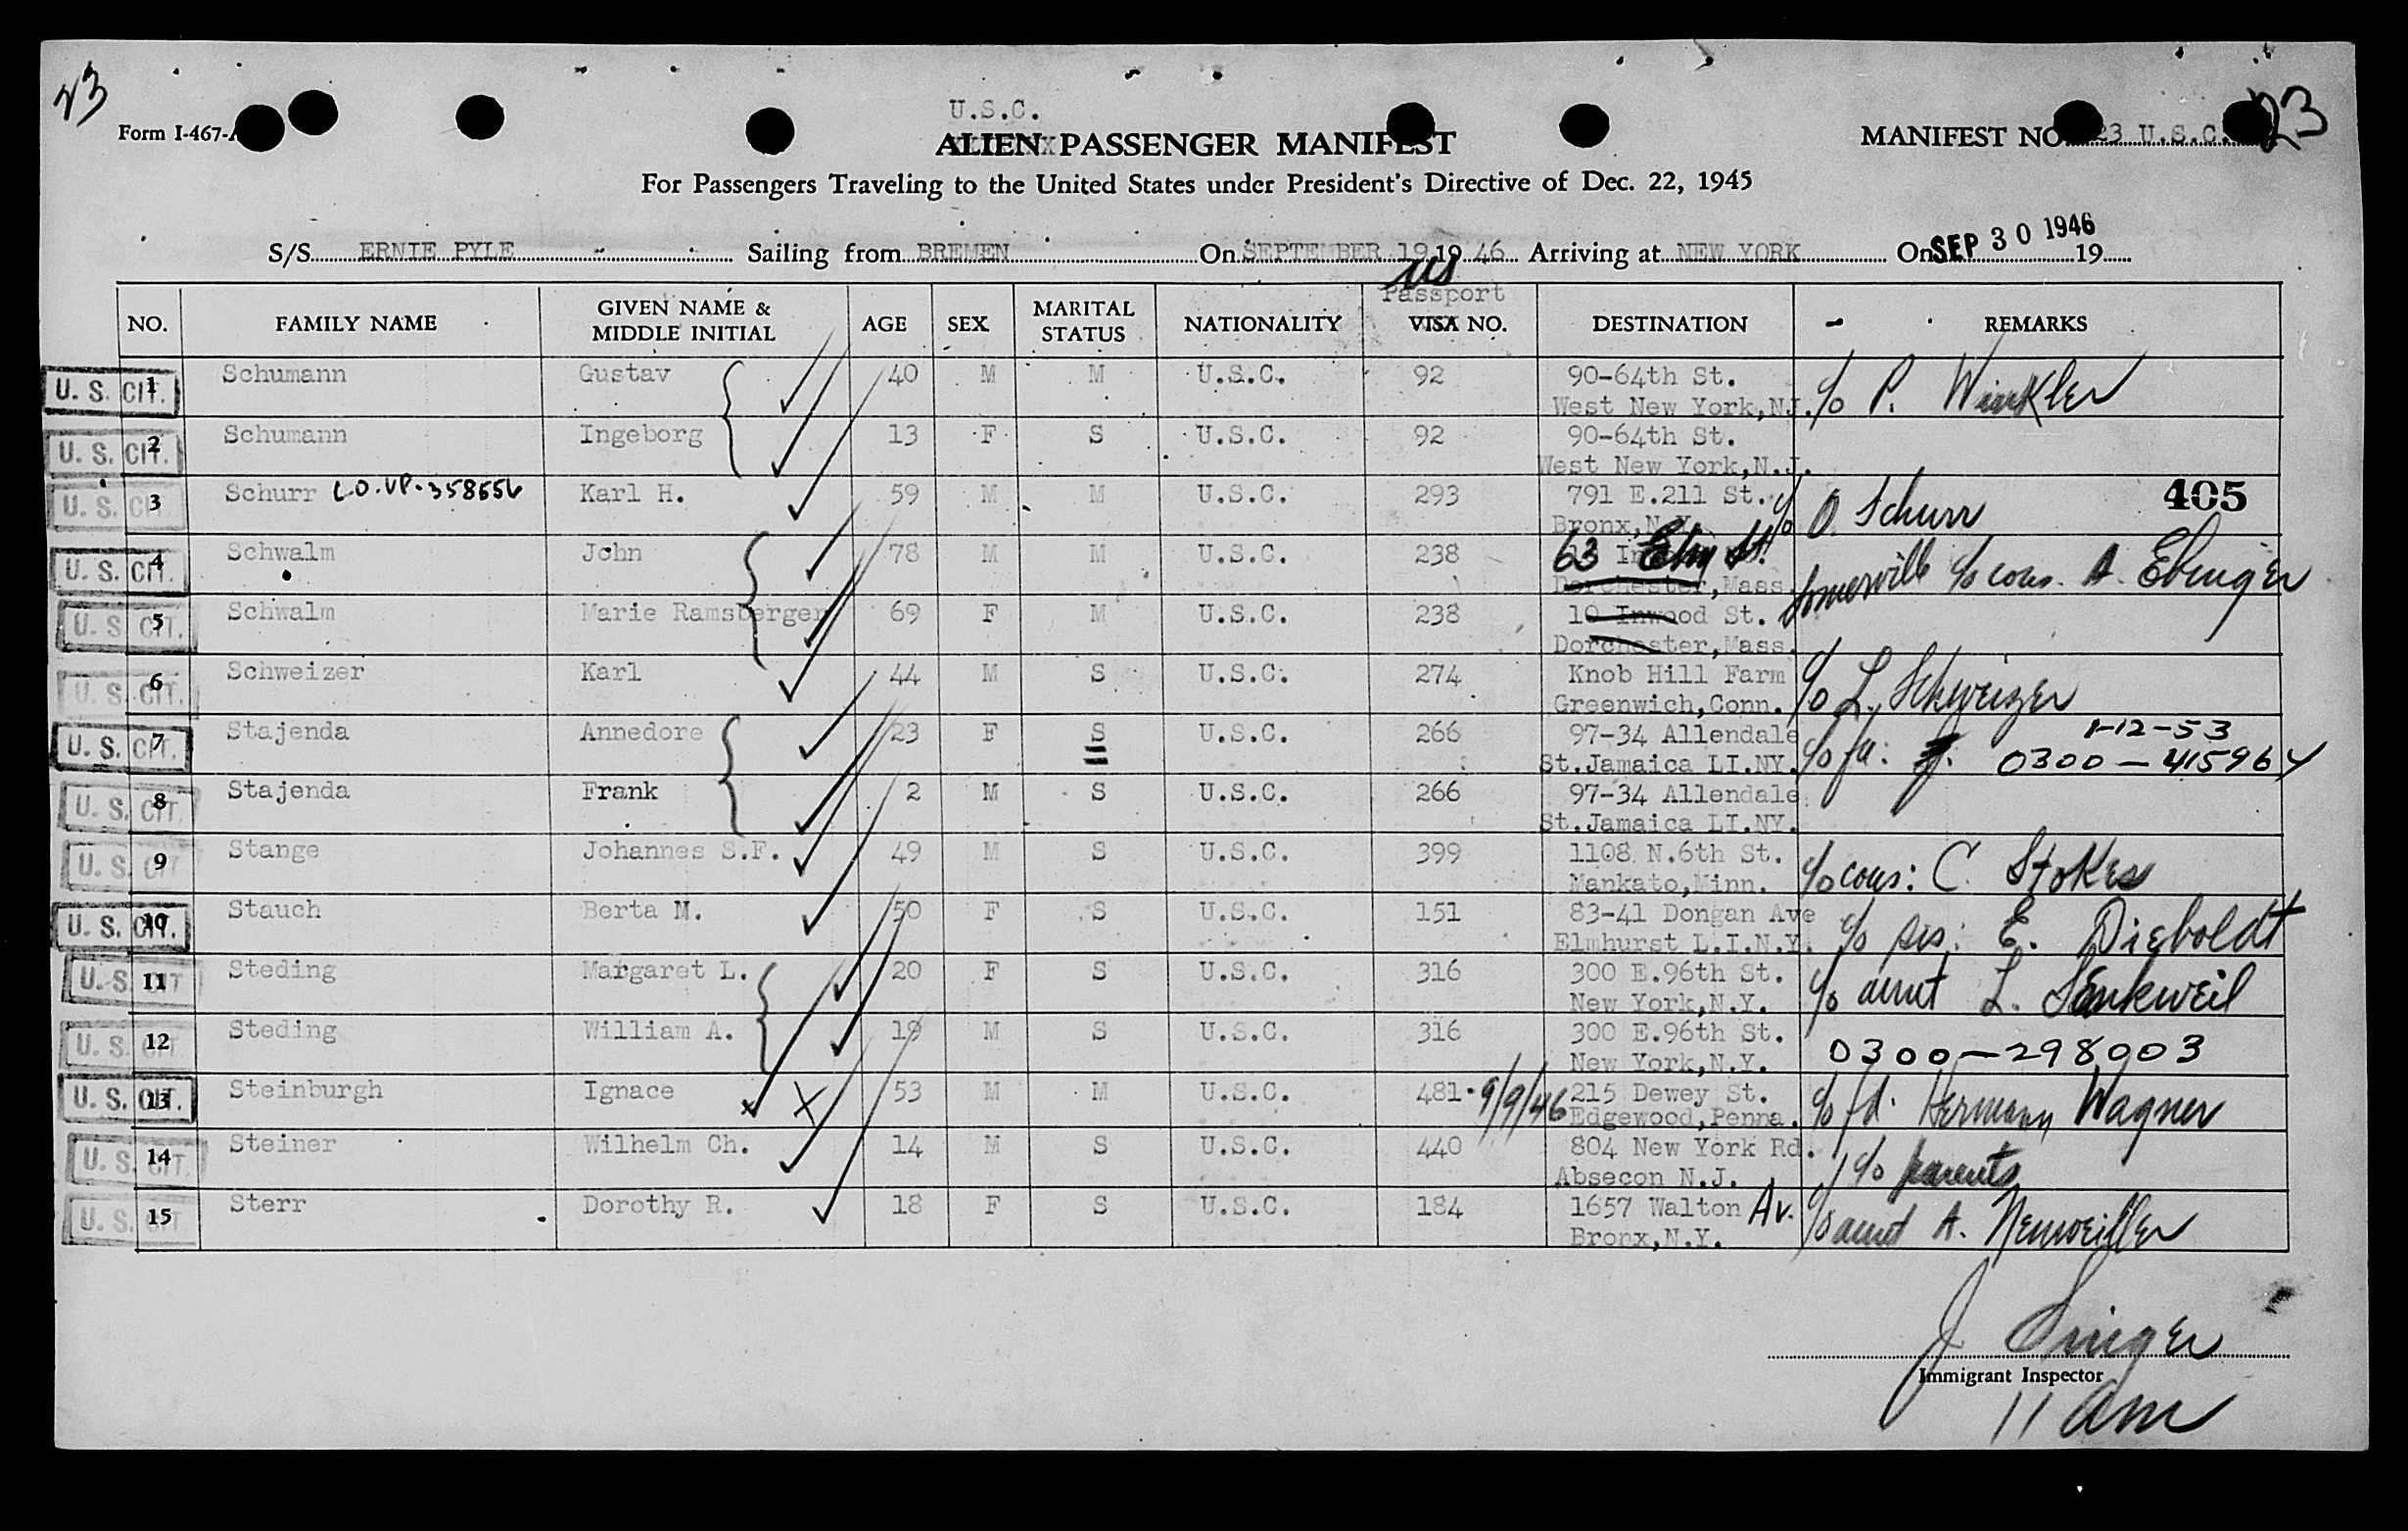 23
U.S.C.
Form I-467-A
ALIEN PASSENGER MANIFEST
MANIFEST NO. 23 U.S.C. 23
For Passengers Traveling to the United States under President's Directive of Dec. 22, 1945
S/S ERNIE PYLE Sailing from BREMEN On SEPTEMBER 19 19 46 Arriving at NEW YORK On SEP 30 1946 19
US
Passport
NO. FAMILY NAME GIVEN NAME & MIDDLE INITIAL AGE SEX MARITAL STATUS NATIONALITY VISA NO. DESTINATION REMARKS
U. S. CIT. 1 Schumann Gustav 40 M M U.S.C. 92 90-64th St. c/o P. Winkler
West New York,NJ.
U. S. CIT. 2 Schumann Ingeborg 13 F S U.S.C. 92 90-64th St.
West New York,N.J.
U. S. CIT. 3 Schurr L.O.VP-358656 Karl H. 59 M M U.S.C. 293 791 E.211 St. c/o O. Schurr 405
Bronx,N.Y.
U. S. CIT. 4 Schwalm John 78 M M U.S.C. 238 63 Elm St. Somerville c/o cous. A. Ebinger
Dorchester,Mass.
U. S. CIT. 5 Schwalm Marie Ramsberger 69 F M U.S.C. 238 10 Inwood St.
Dorchester,Mass.
U. S. CIT. 6 Schweizer Karl 44 M S U.S.C. 274 Knob Hill Farm c/o L. Schweizer
Greenwich,Conn.
U. S. CIT. 7 Stajenda Annedore 23 F S U.S.C. 266 97-34 Allendale 1-12-53
St.Jamaica LI.NY. c/o fa: 0300-415964
U. S. CIT. 8 Stajenda Frank 2 M S U.S.C. 266 97-34 Allendale
St.Jamaica LI.NY.
U. S. CIT 9 Stange Johannes S.F. 49 M S U.S.C. 399 1108 N.6th St. c/o cous: C. Stokes
Mankato,Minn.
U. S. CIT. 10 Stauch Berta M. 50 F S U.S.C. 151 83-41 Dongan Ave c/o sis: E. Dieboldt
Elmhurst L.I.N.Y.
U. S. CIT 11 Steding Margaret L. 20 F S U.S.C. 316 300 E.96th St. c/o aunt L.
New York,N.Y.
U. S. CIT 12 Steding William A. 19 M S U.S.C. 316 300 E.96th St. 0300-298003
New York,N.Y.
U. S. CIT. 13 Steinburgh Ignace X X 53 M M U.S.C. 481 9/9/46 215 Dewey St. c/o fd. Hermann Wagner
Edgewood,Penna.
U. S. CIT. 14 Steiner Wilhelm Ch. 14 M S U.S.C. 440 804 New York Rd. c/o parents
Absecon N.J.
U. S. CIT 15 Sterr Dorothy R. 18 F S U.S.C. 184 1657 Walton Av. c/o aunt A. Neuweiller
Bronx,N.Y.
J. Singer
Immigrant Inspector
11 am